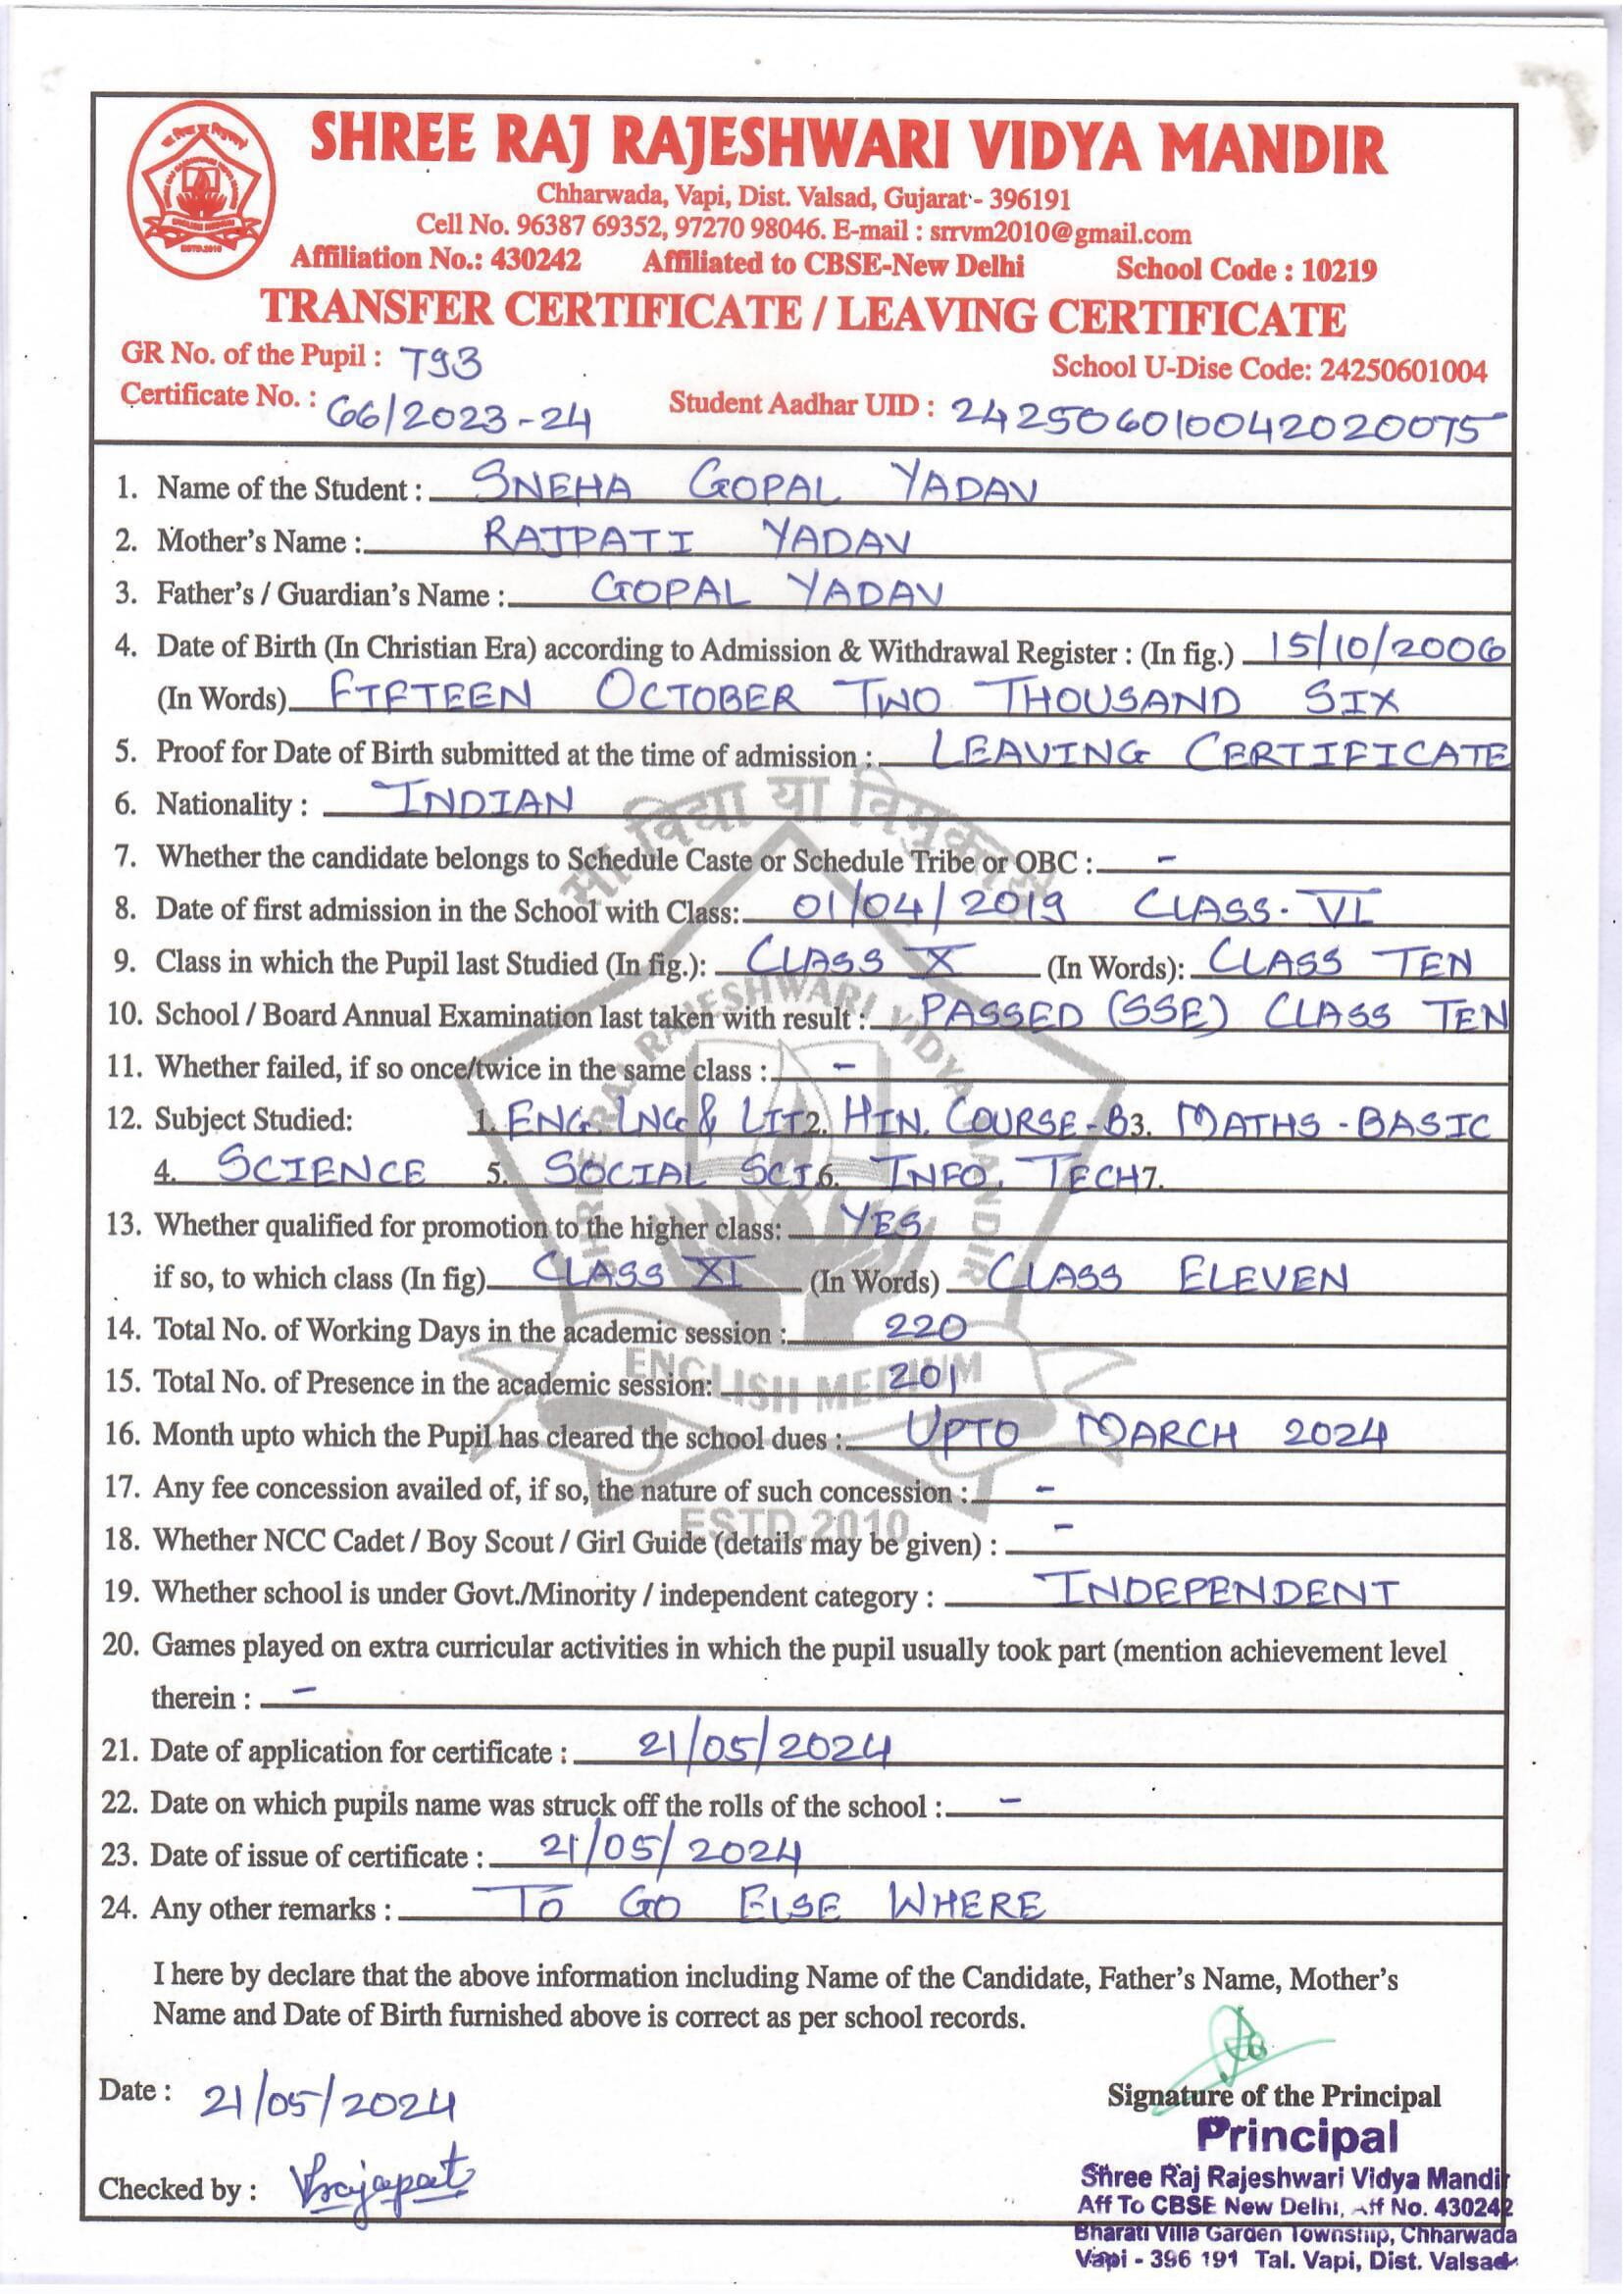 SHREE RAJ RAJESHWARI VIDYA MANDIR
Chharwada, Vapi, Dist. Valsad, Gujarat - 396191
Cell No. 96387 69352, 97270 98046. E-mail : srrvm2010@gmail.com
Affiliation No.: 430242 Affiliated to CBSE-New Delhi School Code : 10219
TRANSFER CERTIFICATE / LEAVING CERTIFICATE
GR No. of the Pupil : T93 School U-Dise Code: 24250601004
Certificate No. : 66/2023-24 Student Aadhar UID : 242506010042020075
1. Name of the Student : SNEHA GOPAL YADAV
2. Mother's Name : RAJPATI YADAV
3. Father's / Guardian's Name : GOPAL YADAV
4. Date of Birth (In Christian Era) according to Admission & Withdrawal Register : (In fig.) 15/10/2006
(In Words) FIFTEEN OCTOBER TWO THOUSAND SIX
5. Proof for Date of Birth submitted at the time of admission : LEAVING CERTIFICATE
6. Nationality : INDIAN
सा विद्या या विमुक्तये
7. Whether the candidate belongs to Schedule Caste or Schedule Tribe or OBC : -
8. Date of first admission in the School with Class: 01/04/2019 CLASS-VI
9. Class in which the Pupil last Studied (In fig.): CLASS X (In Words): CLASS TEN
SHREE RAJ RAJESHWARI VIDYA MANDIR
10. School / Board Annual Examination last taken with result : PASSED (SSE) CLASS TEN
11. Whether failed, if so once/twice in the same class : -
12. Subject Studied: 1. ENG. LNG & LIT 2. HIN. COURSE-B 3. MATHS - BASIC
4. SCIENCE 5. SOCIAL SCI 6. INFO. TECH 7.
13. Whether qualified for promotion to the higher class: YES
if so, to which class (In fig) CLASS XI (In Words) CLASS ELEVEN
14. Total No. of Working Days in the academic session : 220
ENGLISH MEDIUM
15. Total No. of Presence in the academic session: 201
16. Month upto which the Pupil has cleared the school dues : UPTO MARCH 2024
17. Any fee concession availed of, if so, the nature of such concession : -
ESTD.2010
18. Whether NCC Cadet / Boy Scout / Girl Guide (details may be given) : -
19. Whether school is under Govt./Minority / independent category : INDEPENDENT
20. Games played on extra curricular activities in which the pupil usually took part (mention achievement level
therein : -
21. Date of application for certificate : 21/05/2024
22. Date on which pupils name was struck off the rolls of the school : -
23. Date of issue of certificate : 21/05/2024
24. Any other remarks : TO GO ELSE WHERE
I here by declare that the above information including Name of the Candidate, Father's Name, Mother's
Name and Date of Birth furnished above is correct as per school records.
Date : 21/05/2024
Signature of the Principal
Principal
Checked by :
Shree Raj Rajeshwari Vidya Mandir
Aff To CBSE New Delhi, Aff No. 430242
Bharati Villa Garden Township, Chharwada
Vapi - 396 191 Tal. Vapi, Dist. Valsad